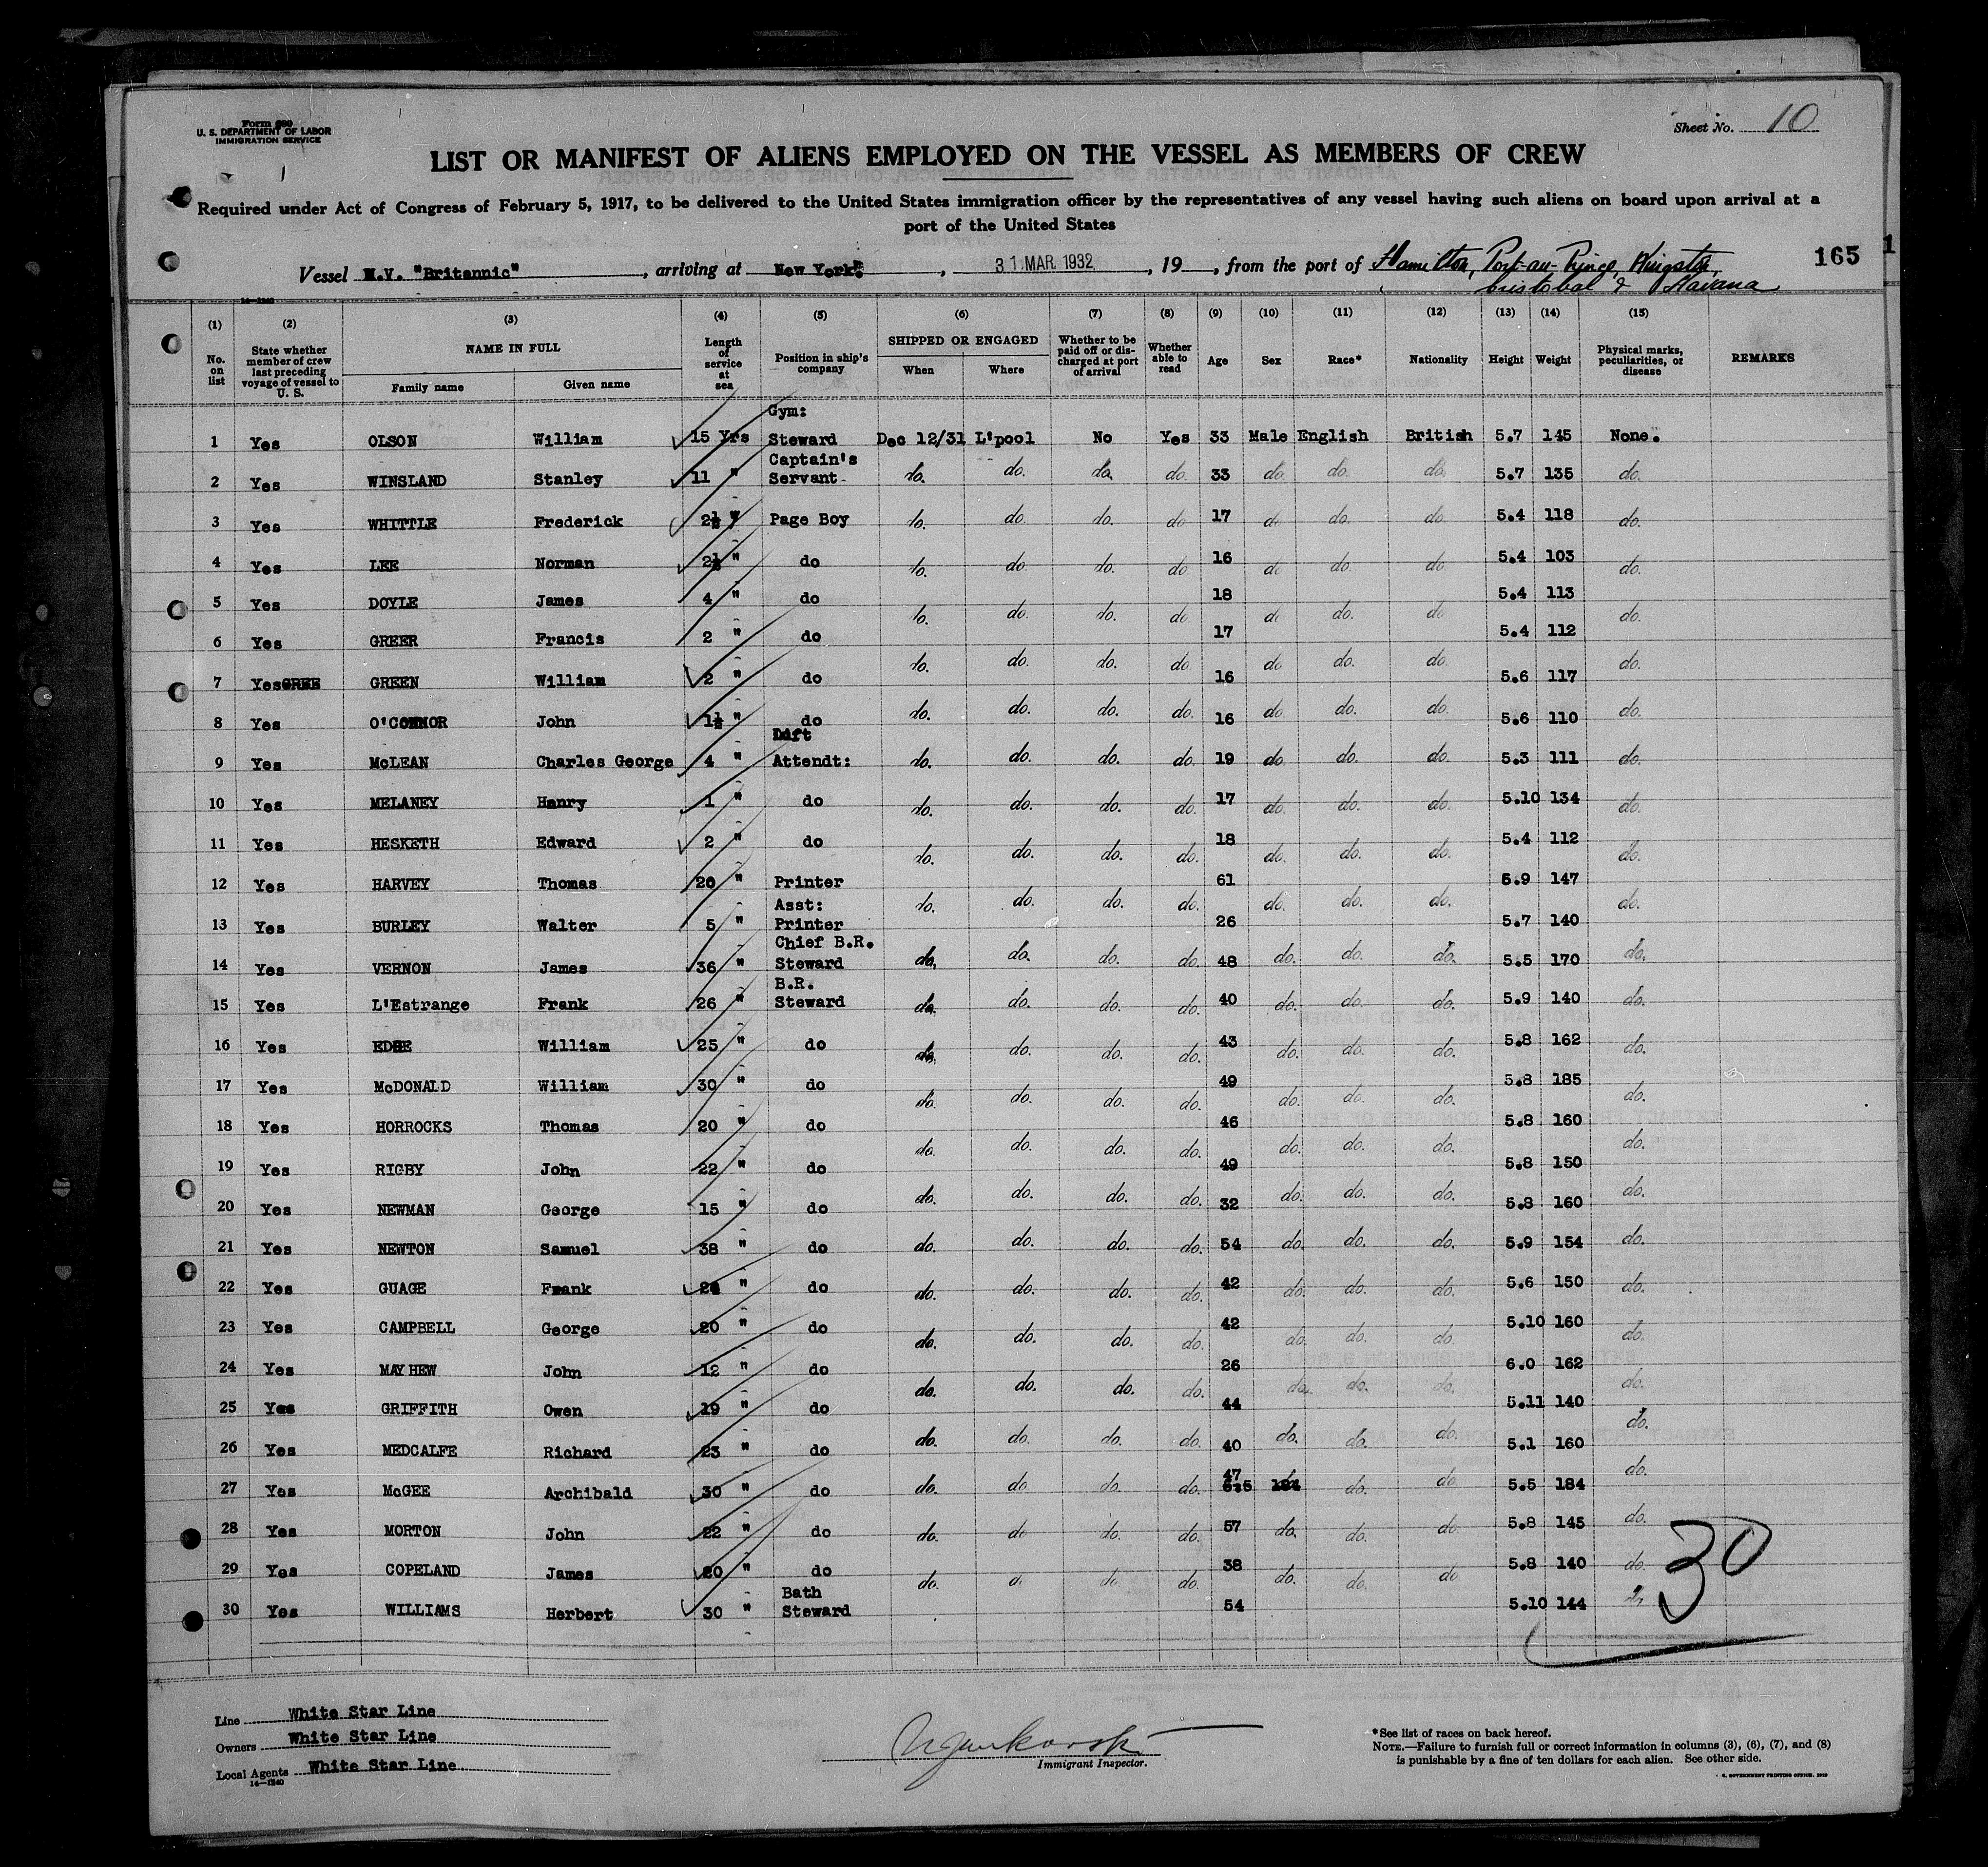 Form 680
U. S. DEPARTMENT OF LABOR
IMMIGRATION SERVICE
Sheet No. 10
LIST OR MANIFEST OF ALIENS EMPLOYED ON THE VESSEL AS MEMBERS OF CREW
Required under Act of Congress of February 5, 1917, to be delivered to the United States immigration officer by the representatives of any vessel having such aliens on board upon arrival at a
port of the United States
Vessel M.V. "Britannic", arriving at New York, 31 MAR 1932, 19, from the port of Hamilton, Port-au-Prince, Kingston, 165
Cristobal & Havana
14-1240
(1) (2) (3) (4) (5) (6) (7) (8) (9) (10) (11) (12) (13) (14) (15)
No. on list State whether member of crew last preceding voyage of vessel to U. S. NAME IN FULL Family name Given name Length of service at sea Position in ship's company SHIPPED OR ENGAGED When Where Whether to be paid off or discharged at port of arrival Whether able to read Age Sex Race* Nationality Height Weight Physical marks, peculiarities, or disease REMARKS
1 Yes OLSON William 15 Yrs Gym: Steward Dec 12/31 L'pool No Yes 33 Male English British 5.7 145 None.
2 Yes WINSLAND Stanley 11 " Captain's Servant do. do. do. do 33 do do. do. 5.7 135 do.
3 Yes WHITTLE Frederick 2½ " Page Boy do. do. do. do 17 do do. do 5.4 118 do.
4 Yes LEE Norman 2½ " do do. do. do. do 16 do do. do 5.4 103 do.
5 Yes DOYLE James 4 " do do. do. do. do 18 do do. do 5.4 113 do.
6 Yes GREER Francis 2 " do do. do. do. do 17 do do. do. 5.4 112 do.
7 Yes GREEN William 2 " do do. do. do. do. 16 do do. do. 5.6 117 do.
8 Yes O'CONNOR John 1½ " do 16 5.6 110
9 Yes McLEAN Charles George 4 " Lift Attendt: do. do. do. do. 19 do do. do. 5.3 111 do.
10 Yes MELANEY Henry 1 " do do. do. do. do. 17 do. do. do. 5.10 134 do.
11 Yes HESKETH Edward 2 " do do. do. do. do. 18 do. do. do. 5.4 112 do.
12 Yes HARVEY Thomas 20 " Printer do. do. do. do. 61 do. do. do. 5.9 147 do.
13 Yes BURLEY Walter 5 " Asst: Printer 26 5.7 140
14 Yes VERNON James 36 " Chief B.R. Steward do. do. do. do. 48 do. do. do. 5.5 170 do.
15 Yes L'Estrange Frank 26 " B.R. Steward do. do. do. do. 40 do. do. do. 5.9 140 do.
16 Yes William 25 " do do. do. do. do. 43 do. do. do. 5.8 162 do.
17 Yes McDONALD William 30 " do do. do. do. do. 49 do. do. do. 5.8 185 do.
18 Yes HORROCKS Thomas 20 " do do. do. do. do. 46 do. do. do. 5.8 160 do.
19 Yes RIGBY John 22 " do 49 5.8 150
20 Yes NEWMAN George 15 " do do. do. do. do. 32 do. do. do. 5.8 160 do.
21 Yes NEWTON Samuel 38 " do do. do. do. do. 54 do. do. do. 5.9 154 do.
22 Yes GUAGE Frank " do do. do. do. do. 42 do. do. do. 5.6 150 do.
23 Yes CAMPBELL George 20 " do do. do. do. do. 42 do. do. do. 5.10 160 do.
24 Yes MAYHEW John 12 " do do. do. do. do. 26 do. do. do. 6.0 162 do.
25 Yes GRIFFITH Owen 19 " do 44 5.11 140 do.
26 Yes MEDCALFE Richard 23 " do do. do. do. do. 40 do. do. do. 5.1 160
27 Yes McGEE Archibald 30 " do do. do do. do. 47 do. do. do 5.5 184 do.
28 Yes MORTON John 22 " do do. do do. do. 57 do. do. do 5.8 145 do.
29 Yes COPELAND James 20 " do do. do do. do. 38 do. do. do 5.8 140 do.
30 Yes WILLIAMS Herbert 30 " Bath Steward 54 5.10 144
30
Line White Star Line
Owners White Star Line
Local Agents White Star Line
14-1240
Immigrant Inspector.
*See list of races on back hereof.
NOTE.—Failure to furnish full or correct information in columns (3), (6), (7), and (8)
is punishable by a fine of ten dollars for each alien. See other side.